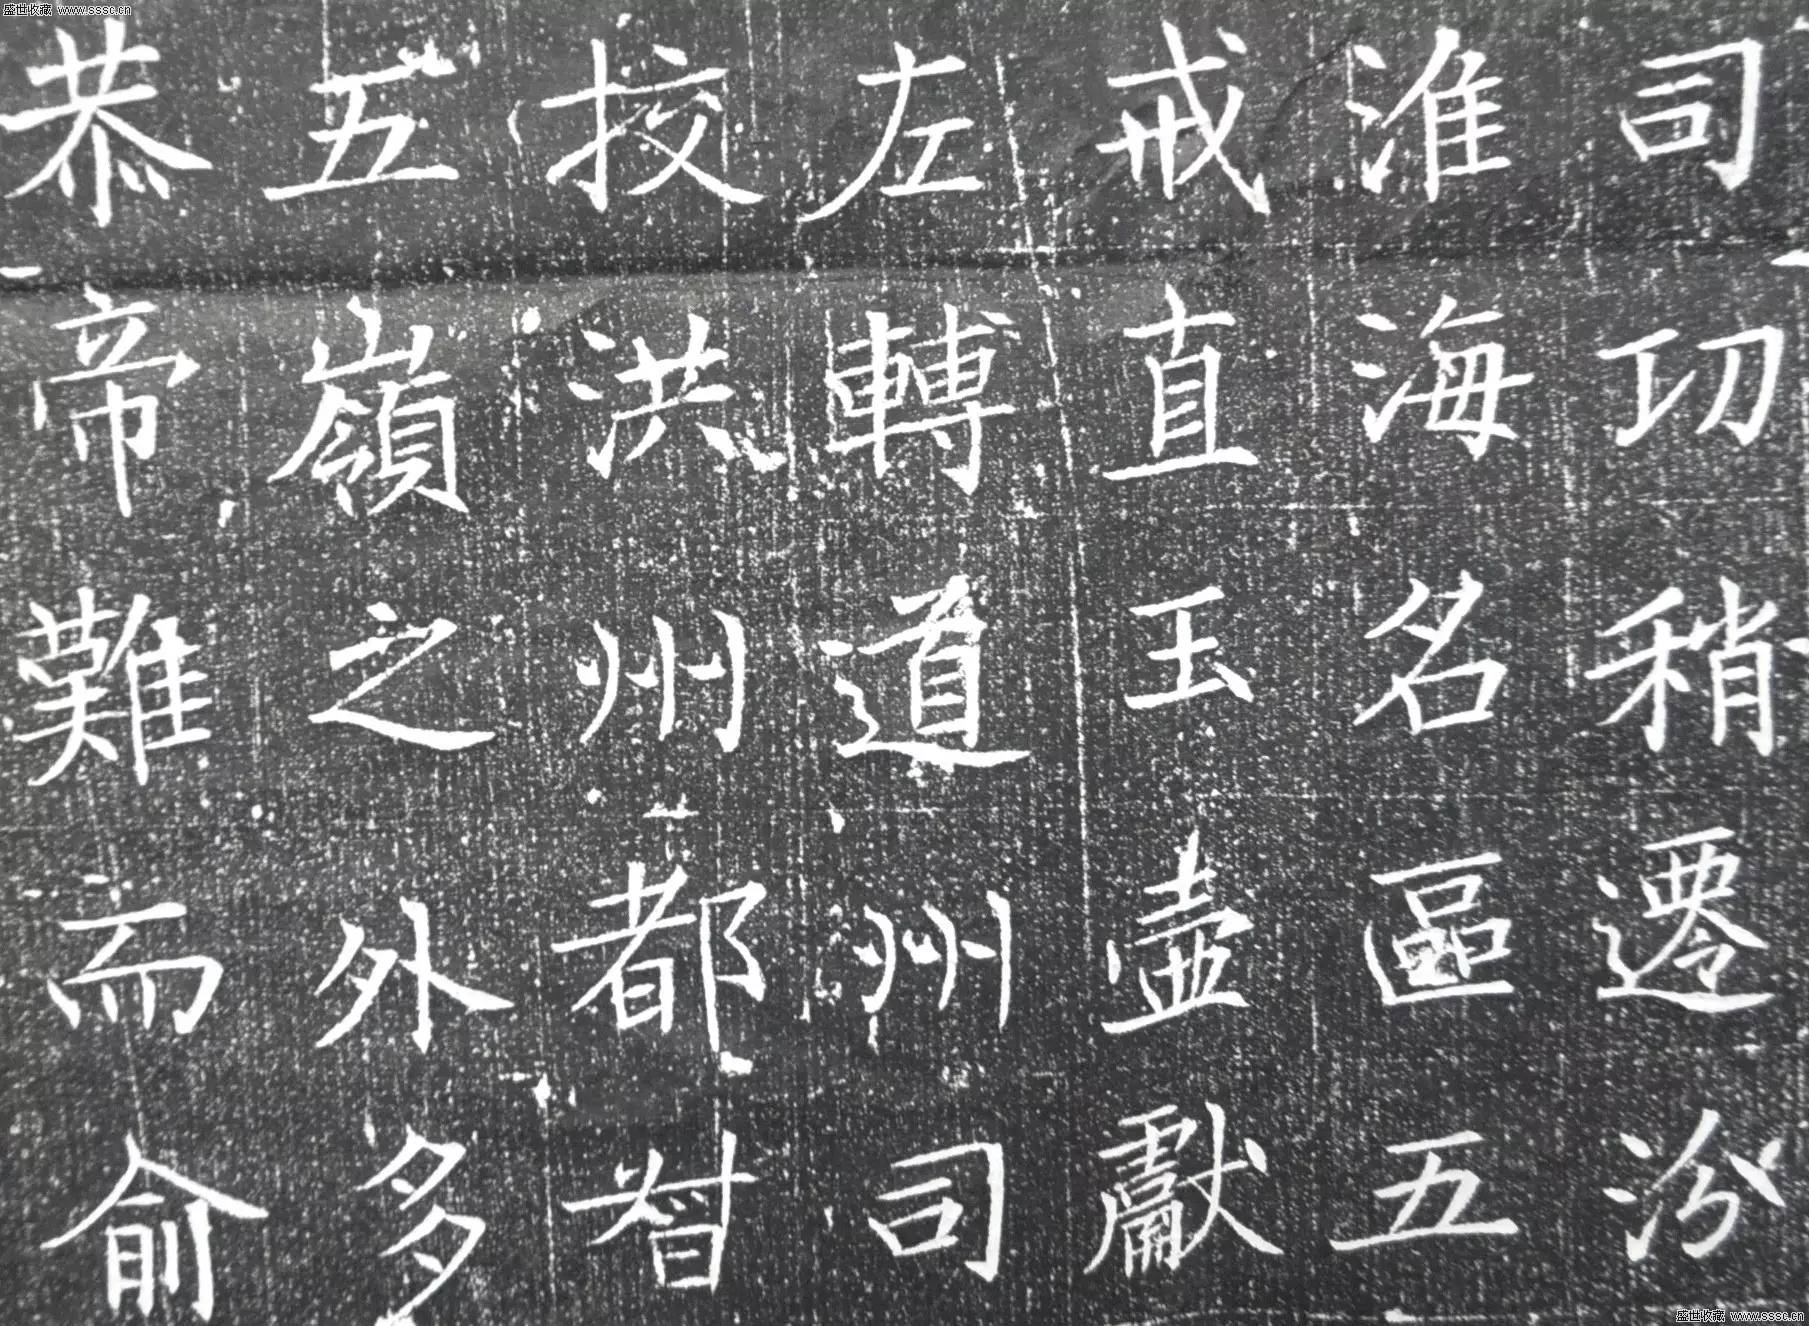 盛世收藏 www.sssc.cn
司㓛稍遷汾
淮海名區五
戒直玉壺獻
左轉道州司
挍洪州都督
五嶺之外多
恭帝難而俞
盛世收藏 www.sssc.cn